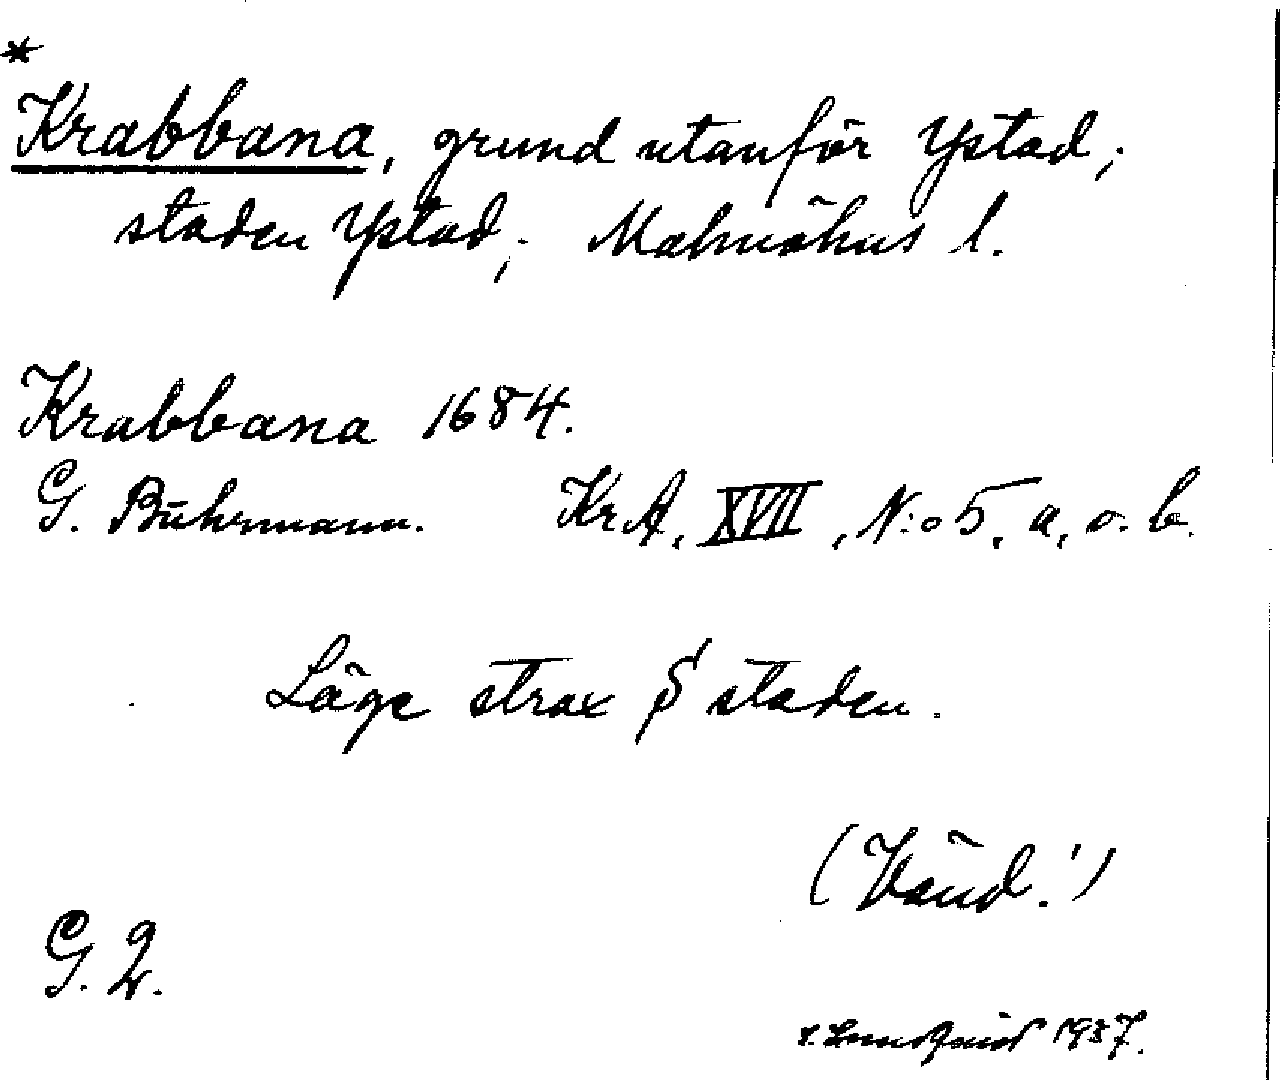 *
Krabbana, grund utanför Ystad;
staden Ystad; Malmöhus l.
Krabbana 1684.
G. Buhrmann. KrA, XVII, N:o 5, a, o. b.
Läge strax S staden.
(Vänd!)
G. 2.
Lundquist 1937.